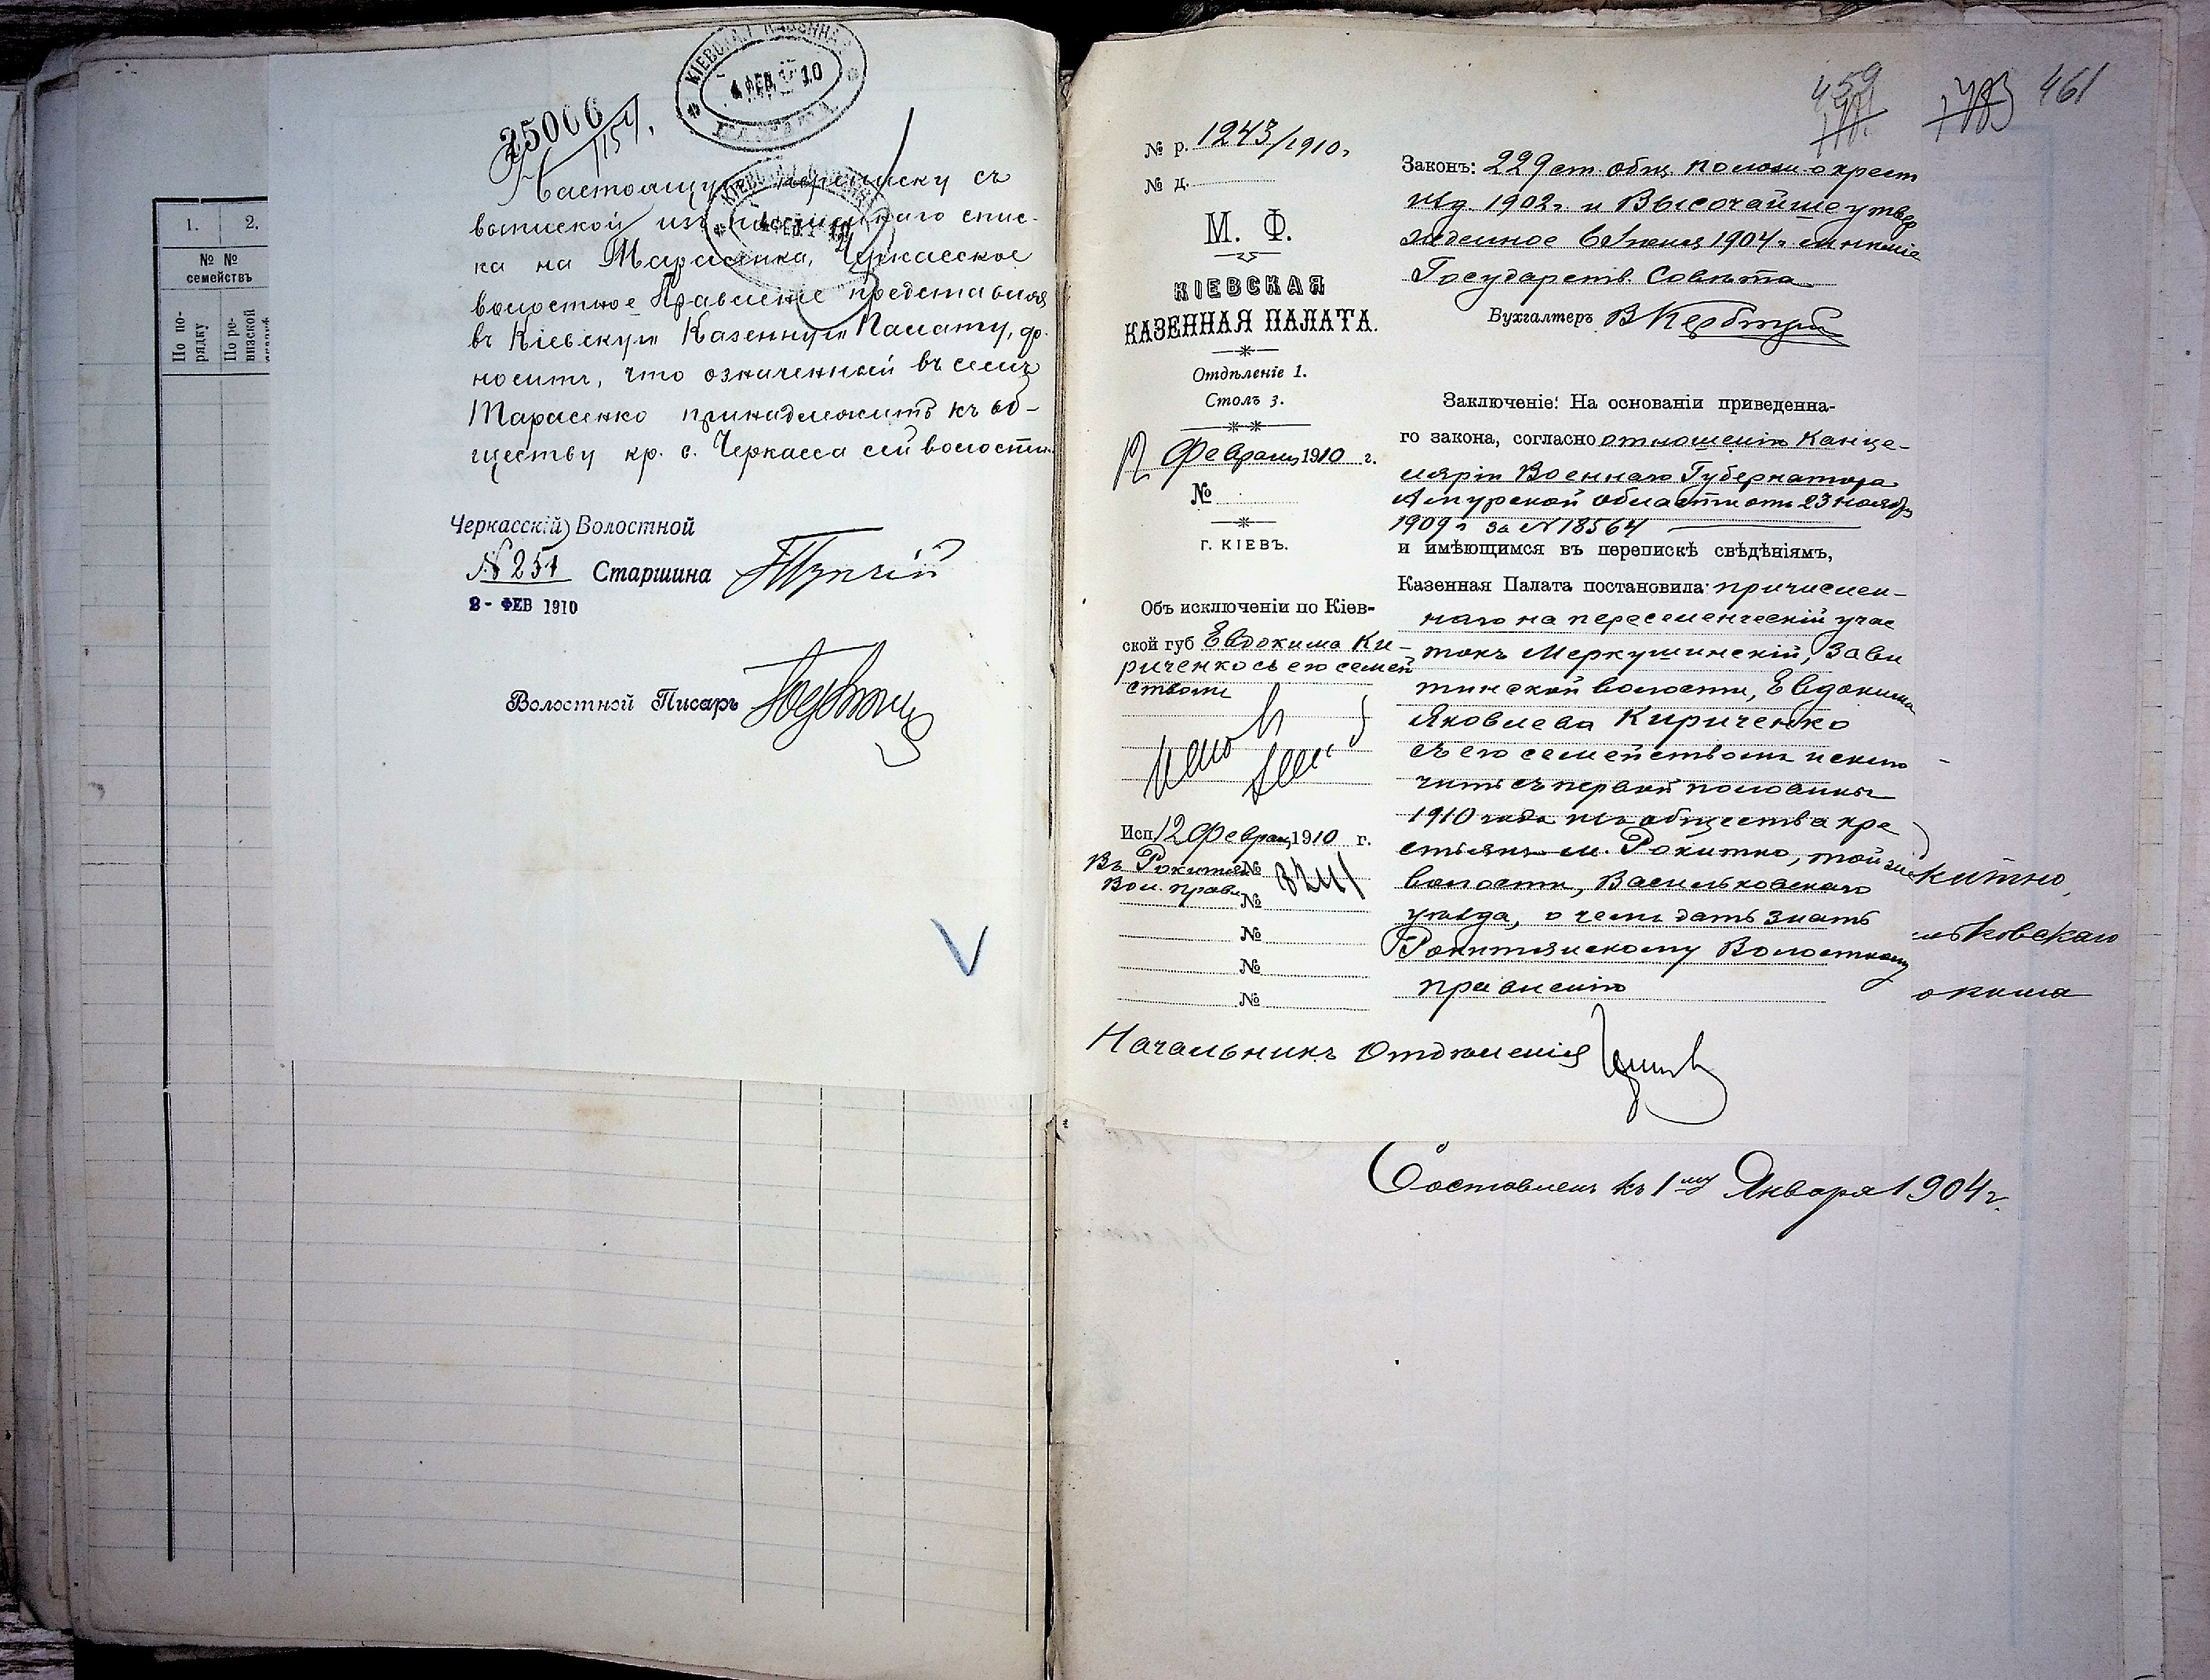 КІЕВСКАЯ КАЗЕННАЯ
4 ФЕВ 1910
ПАЛАТА
25006
1.
2.
№ №
семействъ
По по-
рядку
По ре-
визской
Настоящую переписку съ
выпиской изъ посемейнаго спис-
ка на Тарасенка, Черкасское
волостное Правленіе представляя
въ Кіевскую Казенную Палату, до-
носитъ, что означенный въ семъ
Тарасенко принадлежитъ къ об-
ществу кр. с. Черкасса сей волости.
Черкасскій Волостной
№ 251 Старшина
2 - ФЕВ 1910
Волостной Писарь
459
461
№ р. 1243/1910 г.
№ д.
М. Ф.
КІЕВСКАЯ
КАЗЕННАЯ ПАЛАТА.
Отдѣленіе 1.
Столъ 3.
12 Февраля 1910 г.
№
Г. КІЕВЪ.
Объ исключеніи по Кіев-
ской губ Евдокима Ки-
риченко съ его семей
ствомъ
Исп 12 Февраля 1910 г.
Въ Рокитян № 3241
Вол. правл. №
№
№
№
Законъ: 229 ст. общ. полож. о крест
изд. 1902 г. и Высочайше утвер
жденное 6 Іюня 1904 г. мнѣніе
Государств. Совѣта
Бухгалтеръ
Заключеніе: На основаніи приведенна-
го закона, согласно отношенію Канце-
ляріи Военнаго Губернатора
Амурской области отъ 23 ноября
1909 г. за № 18564
и имѣющимся въ перепискѣ свѣдѣніямъ,
Казенная Палата постановила: причислен-
наго на переселенческій учас
токъ Меркушинскій, Зави
тинской волости, Евдокима
Яковлева Кириченко
съ его семействомъ исклю
чить съ первой половины
1910 года изъ общества кре
стьянъ м. Рокитно, той же
волости, Васильковскаго
уѣзда, о чемъ дать знать
Рокитянскому Волостному
правленію
Начальникъ Отдѣленія
китно,
льковскаго
Составленъ къ 1му Января 1904 г.